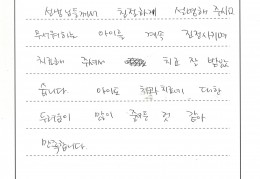 선생님들께서 친절하게 설명해 주시고
무서워하는 아이를 계속 진정시키며
치료해 주셔서 치료 잘 받았
습니다. 아이도 치과치료에 대한
두려움이 많이 줄어든 것 같아
만족합니다.